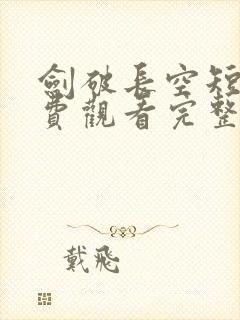 劍破長空短
費觀看完整
戴飛